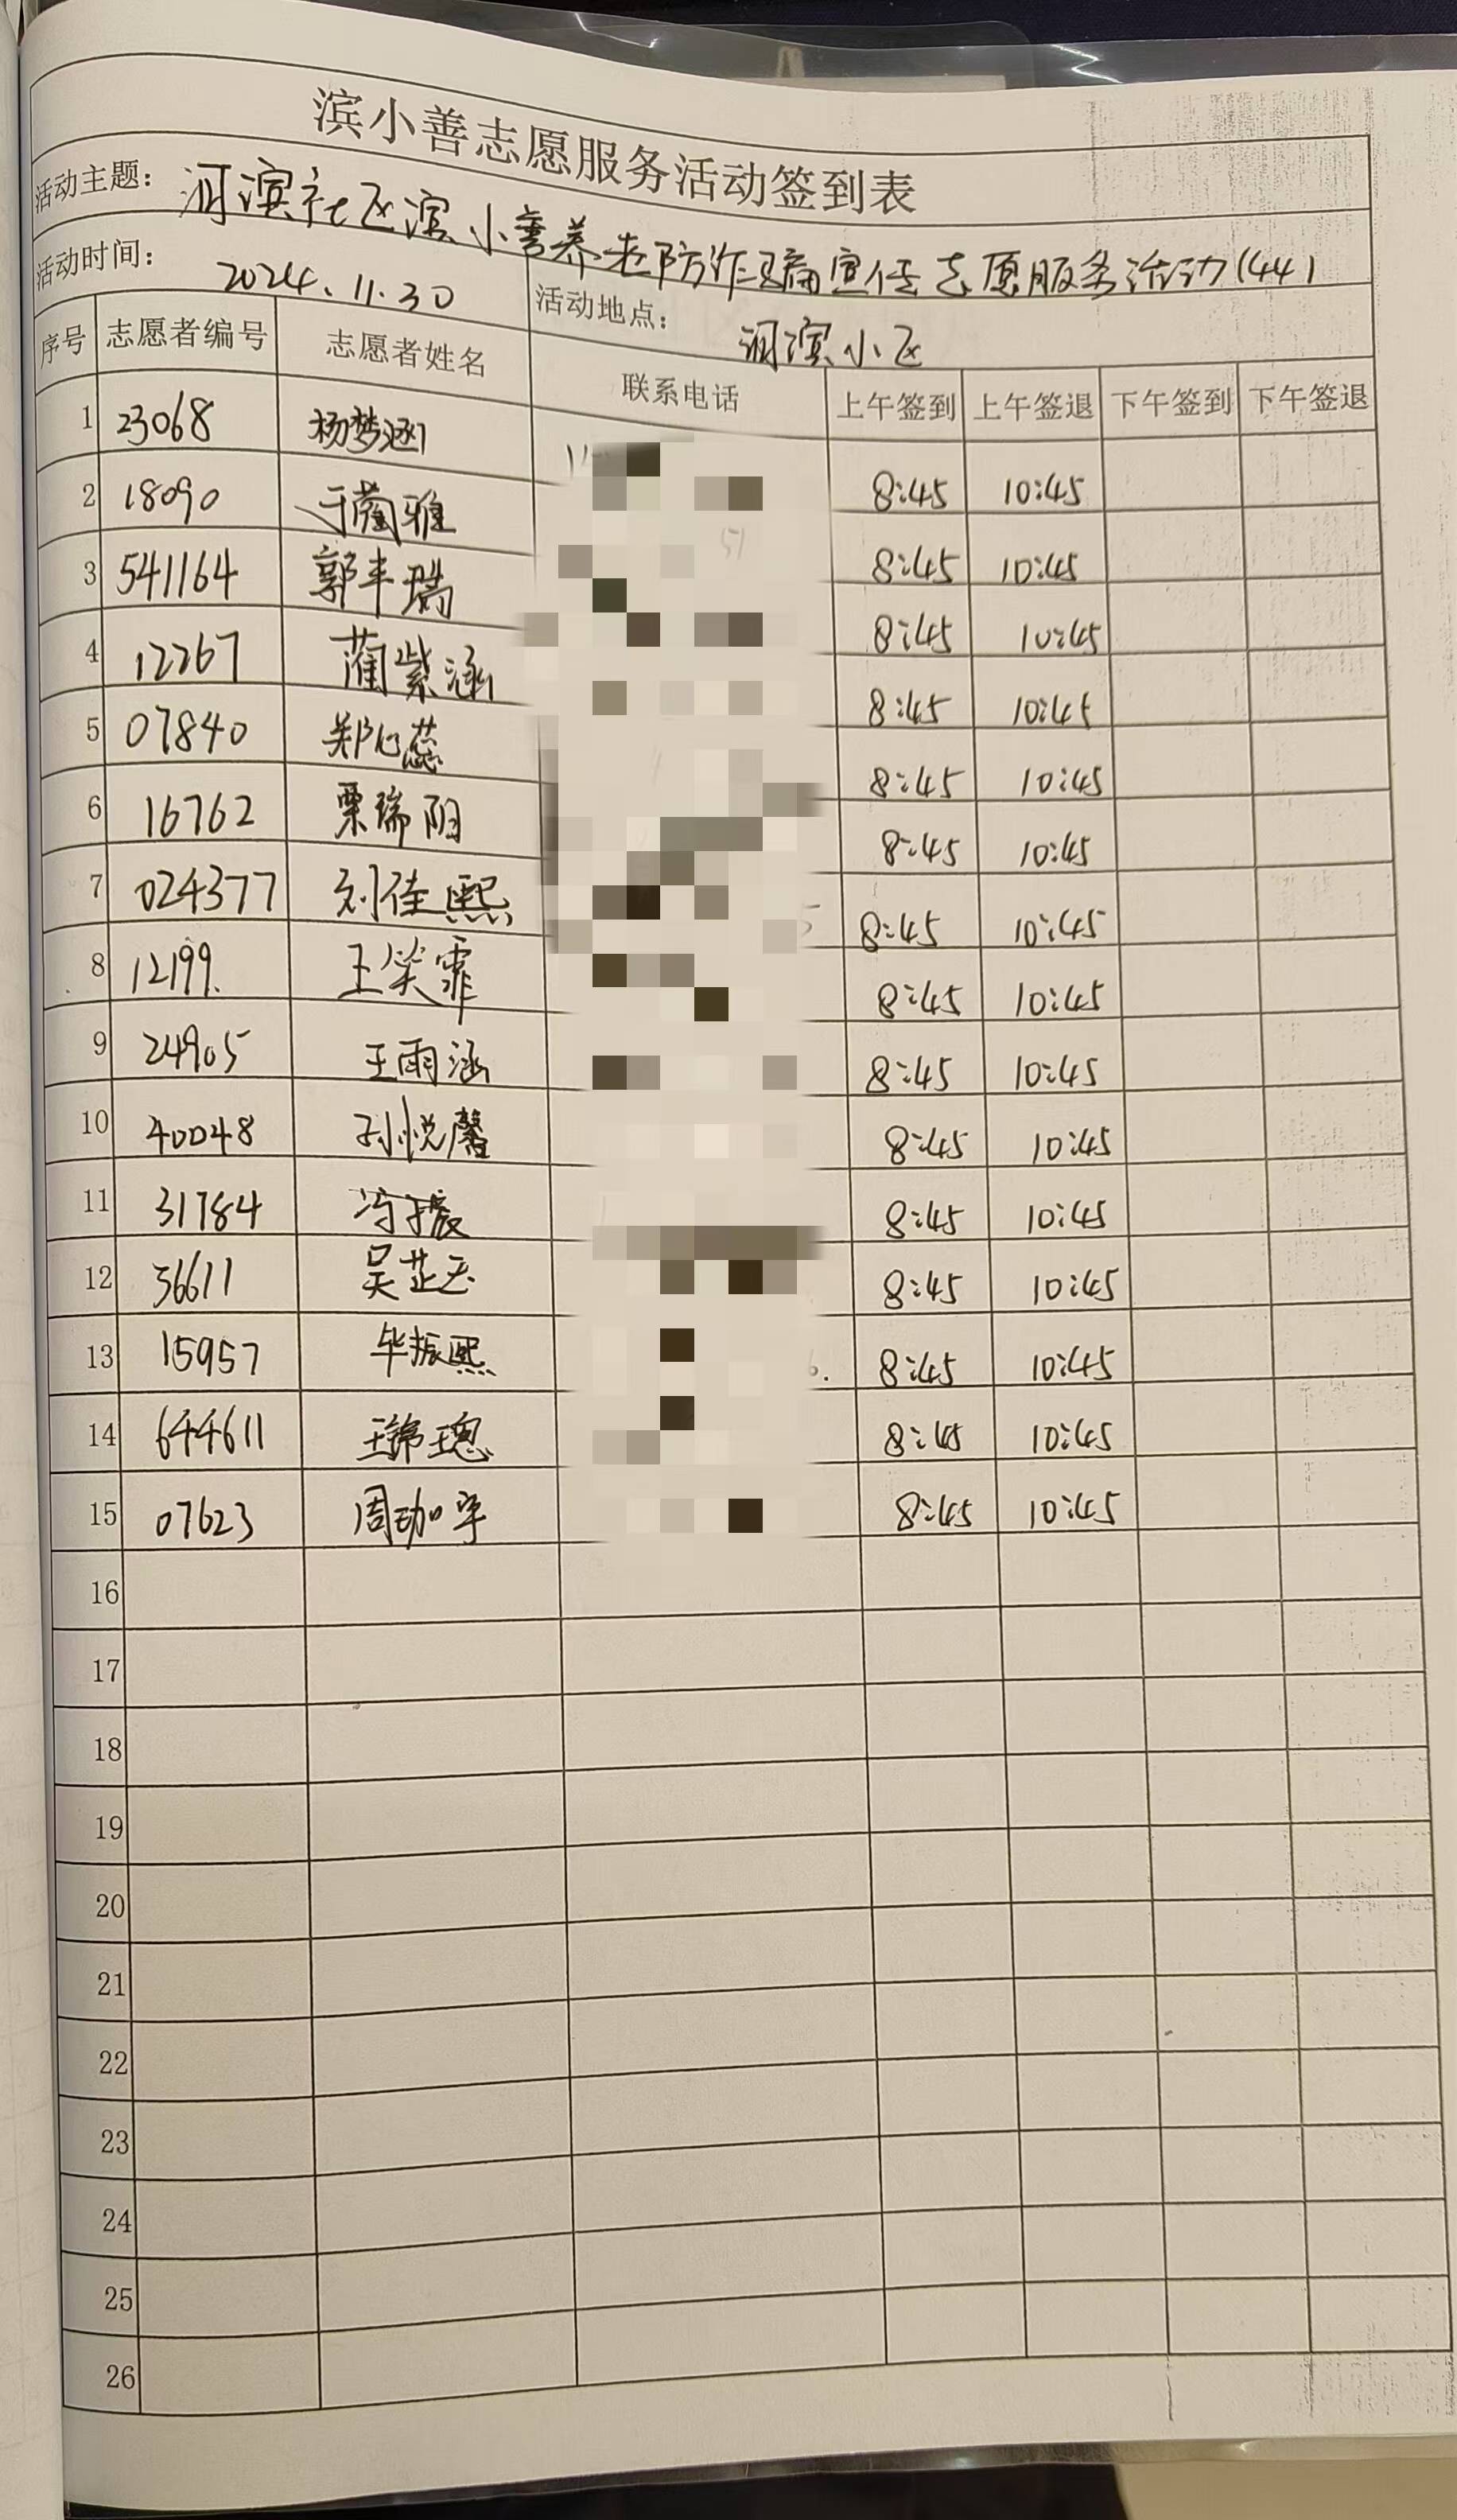 滨小善志愿服务活动签到表
活动主题: 河滨社区滨小善养老防诈骗宣传志愿服务活动(44)
活动时间: 2024.11.30 活动地点: 河滨小区
序号 志愿者编号 志愿者姓名 联系电话 上午签到 上午签退 下午签到 下午签退
1 23068 杨梦涵 8:45 10:45
2 18090 于蔺雅 8:45 10:45
3 541164 郭丰瑞 8:45 10:45
4 12267 蔺紫涵 8:45 10:45
5 07840 郑心蕊 8:45 10:45
6 16762 栗瑞阳 8:45 10:45
7 024377 刘佳熙 8:45 10:45
8 12199. 王笑霏 8:45 10:45
9 24905 王雨涵 8:45 10:45
10 40048 孙悦馨 8:45 10:45
11 31784 8:45 10:45
12 36611 吴芷 8:45 10:45
13 15957 毕振熙 8:45 10:45
14 644611 8:45 10:45
15 07623 周珈宇 8:45 10:45
16
17
18
19
20
21
22
23
24
25
26